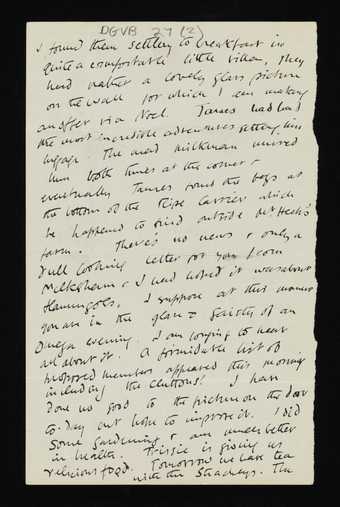 DGVB 27 (2)
I found them settling to breakfast in
quite a comfortable little villa, they
had rather a lovely glass picture
on the wall for which I am making
an offer via Noel. James had had
the most incredible adventures getting his
luggage. The mad milkman missed
him both times at the corner &
eventually James found the bags at
the bottom of the Tipe Carrier which
he happened to find outside Mr Hecks'
farm. There's no news & only a
dull looking letter for you from
I had hoped it was about
I suppose at this moment
you are in the glare & gaiety of an
Omega evening. I am longing to hear
all about it. A formidable list of
proposed members appeared this morning
including the Cluttons! I have
done no good to the picture on the door
to-day but hope to improve it. I did
some gardening & am much better
in health. is giving us
religious food. Tomorrow we have tea
with the Stracheys. The